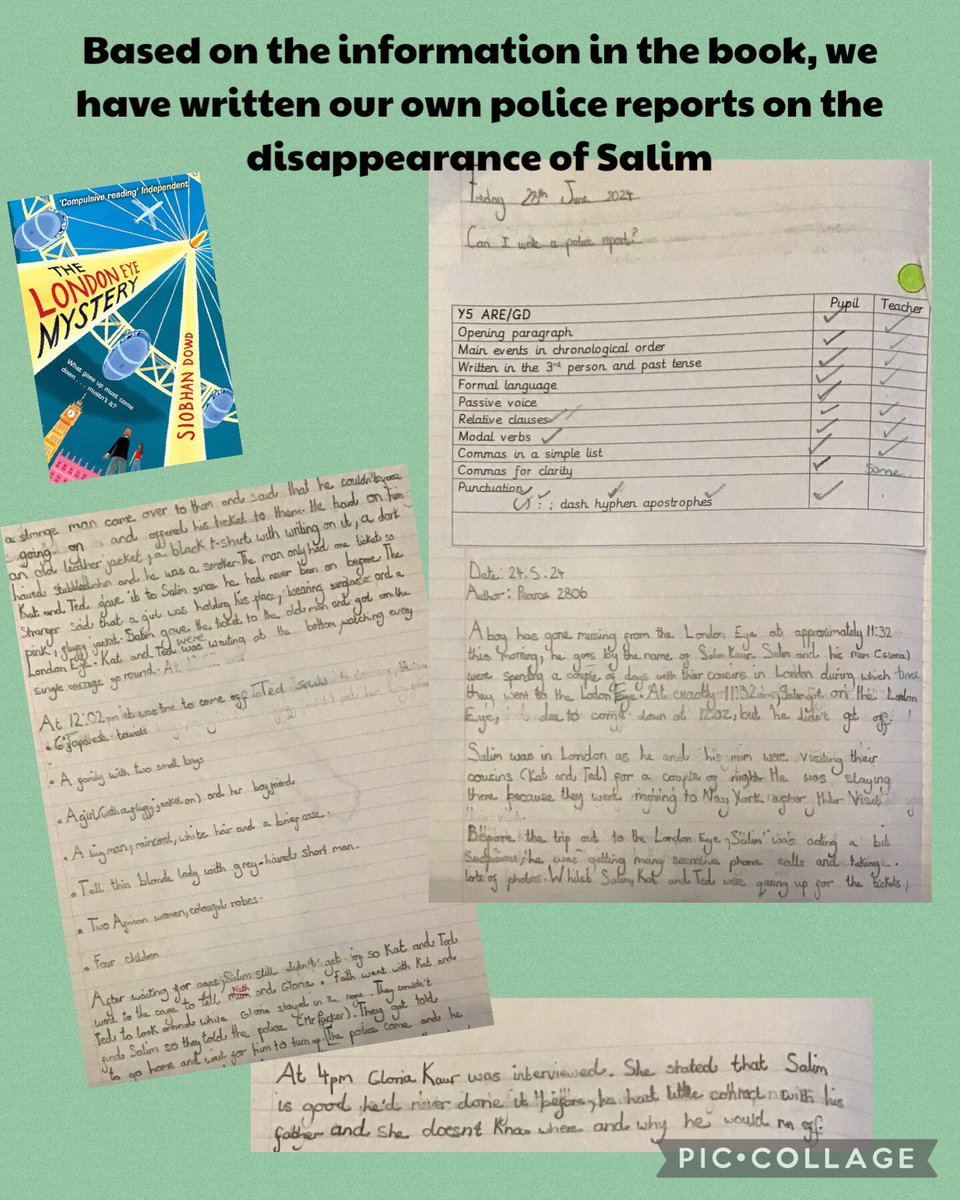 Based on the information in the book, we
have written our own police reports on the
disappearance of Salim
'Compulsive reading' Independent
THE
LONDON EYE
MYSTERY
What goes up must come
down . . . mustn't it?
SIOBHAN DOWD
Friday 28th June 2024
Can I write a police report?
Y5 ARE/GD
Pupil
Teacher
Opening paragraph
Main events in chronological order
Written in the 3rd person and past tense
Formal language
Passive voice
Relative clauses
Modal verbs
Commas in a simple list
Commas for clarity
Some
Punctuation
: ; dash hyphen apostrophes
Date: 24.5.24
Author: Pearce 2806
A boy has gone missing from the London Eye at approximately 11:32
this morning, he goes by the name of Salim Kaur. Salim and his mum (Gloria)
were spending a couple of days with their cousins in London during which time
they went to the Lodon Eye. At exactly 11:32am, Salim got on the London
Eye, due to come down at 12:02, but he didn't get off.
Salim was in London as he and his mum were visiting their
cousins (Kat and Ted) for a couple of nights. He was staying
there because they were moving to New York after their visit
Before the trip out to the London Eye, Salim was acting a bit
suspicious, he was getting many secretive phone calls and taking
lots of photos. Whilst Salim, Kat and Ted were queing up for the tickets,
a strange man came over to them and said that he couldn't
going on and offered his ticket to them. He had on him
an old leather jacket, a black t-shirt with writing on it, a dark
haired, and he was a smoker. The man only had one ticket so
Kat and Ted gave it to Salim since he had never been on before. The
Stranger said that a girl was holding his place, wearing sunglasses and a
pink, fluffy jacket. Salim gave the ticket to the old man and got on the
London Eye. Kat and Ted were waiting at the bottom, watching every
single carriage go round.
At 12:02pm it was time to come off Ted saw
• 6 Japanese tourists
• A family with two small boys
A girl (with a fluffy jacket on) and her boyfriend
• A big man, raincoat, white hair and a brief case.
• Tall thin blonde lady with grey-haired short man.
• Two African women, colourful robes.
• Four children
After waiting for ages, Salim still didn't get off so Kat and Ted
went to the cafe to tell Faith and Gloria. Faith went with Kat and
Ted to look around while Gloria stayed in the cafe. They couldn't
find Salim so they told the police (Mr Parker). They got told
to go home and wait for him to turn up. The police came and he
At 4pm Gloria Kaur was interviewed. She stated that Salim
is good, he'd never done it before, he had little contact with his
father and she doesn't know where and why he would run off.
PIC•COLLAGE